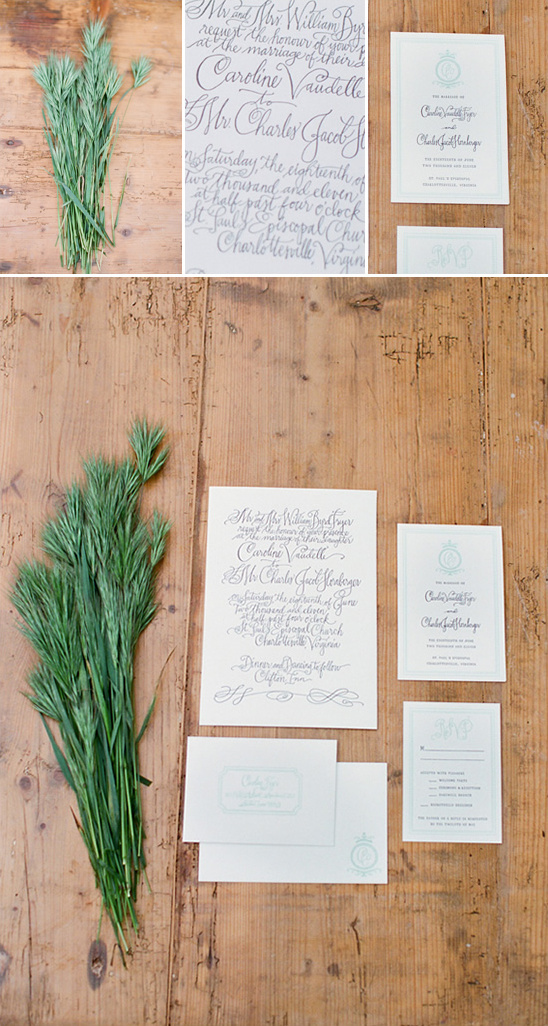 Mr and Mrs William Byrd
request the honour of your
at the marriage of their
Caroline Vaudelle
to
Mr. Charles Jacob
on Saturday, the eighteenth of
two thousand and eleven
at half past four o'clock
St. Paul's Episcopal Chur
Charlottesville, Virginia
THE MARRIAGE OF
Caroline Vaudelle Fryer
and
Charles Jacob Hernberger
THE EIGHTEENTH OF JUNE
TWO THOUSAND AND ELEVEN
ST. PAUL'S EPISCOPAL
CHARLOTTESVILLE, VIRGINIA
RSVP
Mr and Mrs William Byrd Fryer
request the honour of your presence
at the marriage of their daughter
Caroline Vaudelle
to
Mr. Charles Jacob Hernberger
on Saturday the eighteenth of June
two thousand and eleven
at half past four o'clock
St. Paul's Episcopal Church
Charlottesville, Virginia
Dinner and Dancing to follow
Clifton Inn
THE MARRIAGE OF
Caroline Vaudelle Fryer
and
Charles Jacob Hernberger
THE EIGHTEENTH OF JUNE
TWO THOUSAND AND ELEVEN
ST. PAUL'S EPISCOPAL
CHARLOTTESVILLE, VIRGINIA
RSVP
M
ACCEPTS WITH PLEASURE
WELCOME PARTY
CEREMONY & RECEPTION
FAREWELL BRUNCH
REGRETFULLY DECLINES
THE FAVOR OF A REPLY IS REQUESTED
BY THE TWELFTH OF MAY